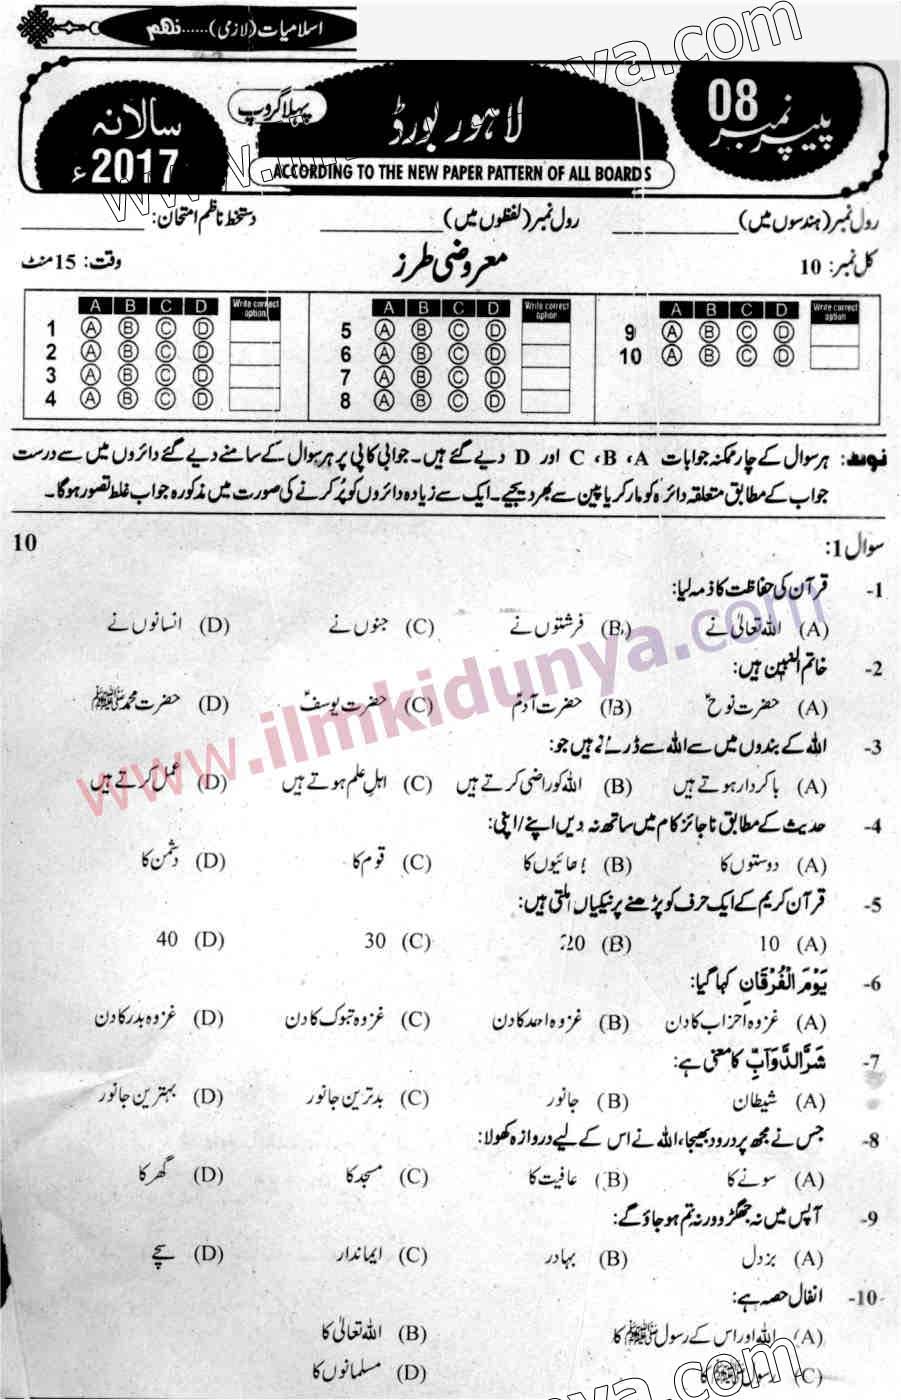 اسلامیات (لازمی)......نہم
پیپر نمبر 08
لاہور بورڈ
پہلا گروپ
سالانہ 2017ء
ACCORDING TO THE NEW PAPER PATTERN OF ALL BOARDS
رول نمبر (ہندسوں میں) ____________ رول نمبر (لفظوں میں) ____________ دستخط ناظم امتحان: ____________
کل نمبر: 10 معروضی طرز وقت: 15 منٹ
A B C D Write correct option A B C D Write correct option A B C D Write correct option
1 A B C D 5 A B C D 9 A B C D
2 A B C D 6 A B C D 10 A B C D
3 A B C D 7 A B C D
4 A B C D 8 A B C D
نوٹ: ہر سوال کے چار ممکنہ جوابات A ،B ،C اور D دیے گئے ہیں۔ جوابی کاپی پر ہر سوال کے سامنے دیے گئے دائروں میں سے درست
جواب کے مطابق متعلقہ دائرہ کو مارکر یا پین سے بھر دیجیے۔ ایک سے زیادہ دائروں کو پُر کرنے کی صورت میں مذکورہ جواب غلط تصور ہوگا۔
سوال 1: 10
1- قرآن کی حفاظت کا ذمہ لیا:
(A) اللہ تعالیٰ نے (B) فرشتوں نے (C) جنوں نے (D) انسانوں نے
2- خاتم النبیین ہیں:
(A) حضرت نوحؑ (B) حضرت آدمؑ (C) حضرت یوسفؑ (D) حضرت محمد ﷺ
3- اللہ کے بندوں میں سے اللہ سے ڈرتے ہیں جو:
(A) باکردار ہوتے ہیں (B) اللہ کو راضی کرتے ہیں (C) اہلِ علم ہوتے ہیں (D) عمل کرتے ہیں
4- حدیث کے مطابق ناجائز کام میں ساتھ نہ دیں اپنے/اپنی:
(A) دوستوں کا (B) بھائیوں کا (C) قوم کا (D) دشمن کا
5- قرآن کریم کے ایک حرف کو پڑھنے پر نیکیاں ملتی ہیں:
(A) 10 (B) 20 (C) 30 (D) 40
6- يَوْمَ الْفُرْقَانِ کہا گیا:
(A) غزوہ احزاب کا دن (B) غزوہ احد کا دن (C) غزوہ تبوک کا دن (D) غزوہ بدر کا دن
7- شَرَّ الدَّوَآبِّ کا معنی ہے:
(A) شیطان (B) جانور (C) بدترین جانور (D) بہترین جانور
8- جس نے مجھ پر درود بھیجا، اللہ نے اس کے لیے دروازہ کھولا:
(A) سونے کا (B) عافیت کا (C) مسجد کا (D) گھر کا
9- آپس میں نہ جھگڑو ورنہ تم ہو جاؤ گے:
(A) بزدل (B) بہادر (C) ایماندار (D) سچے
10- انفال حصہ ہے:
(A) اللہ اور اس کے رسول ﷺ کا (B) اللہ تعالیٰ کا
(C) رسول ﷺ کا (D) مسلمانوں کا
www.ilmkidunya.com